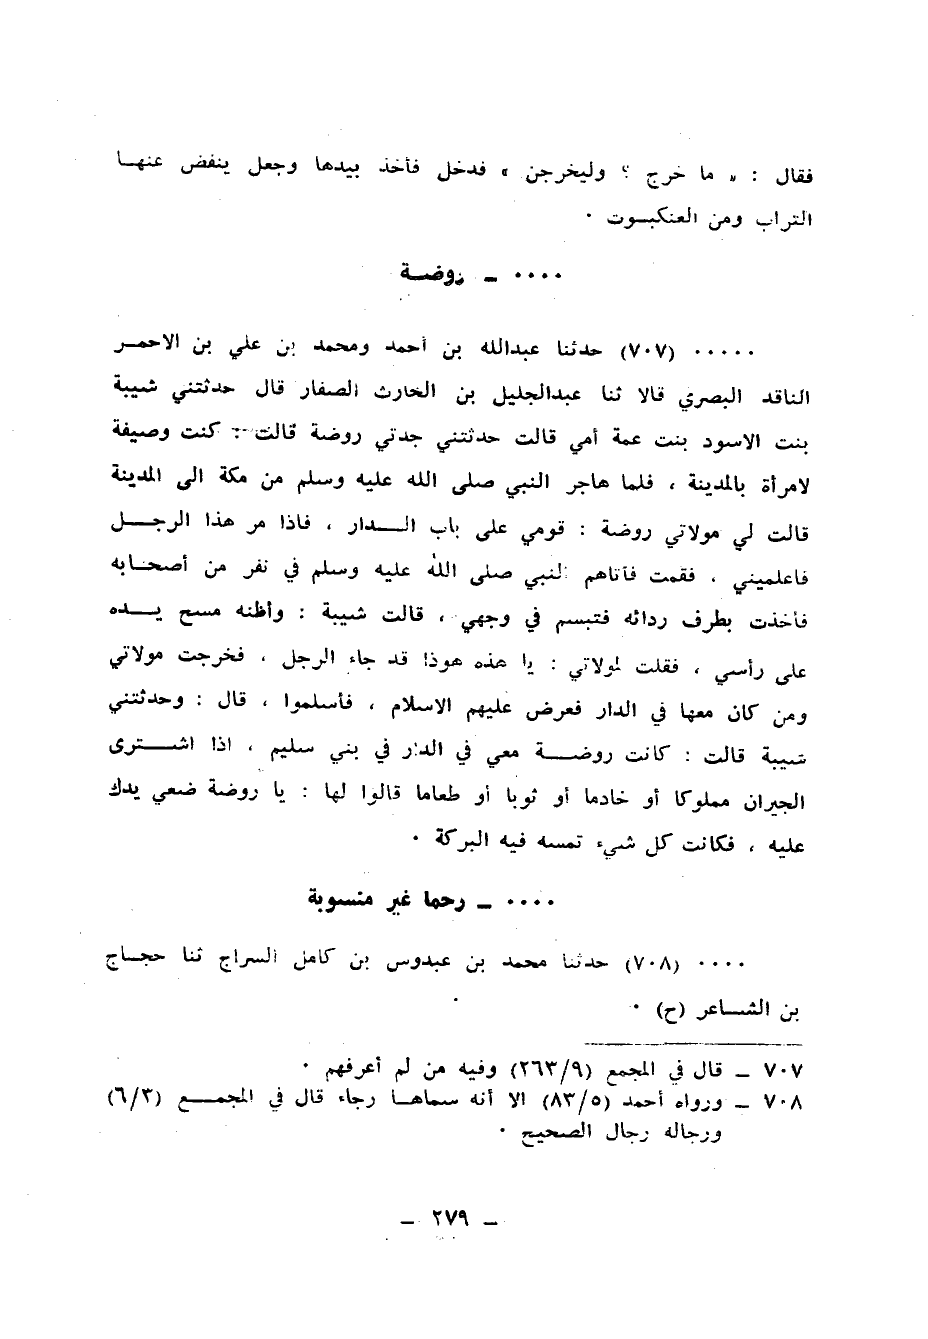 فقال : « ما خرج ؟ وليخرجن » فدخل فأخذ بيدها وجعل ينفض عنهـا
التراب ومن العنكبـوت ٠
٠٠٠٠ ـ روضـة
٠٠٠٠٠ (٧٠٧) حدثنا عبدالله بن أحمد ومحمد بن علي بن الاحمـر
الناقد البصري قالا ثنا عبدالجليل بن الحارث الصفار قال حدثتني شيبة
بنت الاسود بنت عمة أمي قالت حدثتني جدتي روضة قالت : كنت وصيفة
لامرأة بالمدينة ، فلما هاجر النبي صلى الله عليه وسلم من مكة الى المدينة
قالت لي مولاتي روضة : قومي على باب الــدار ، فاذا مر هذا الرجــل
فاعلميني ، فقمت فأتاهم النبي صلى الله عليه وسلم في نفر من أصحـابه
فأخذت بطرف ردائه فتبسم في وجهي ، قالت شيبة : وأظنه مسح يــده
على رأسي ، فقلت لمولاتي : يا هذه هوذا قد جاء الرجل ، فخرجت مولاتي
ومن كان معها في الدار فعرض عليهم الاسلام ، فأسلموا ، قال : وحدثتني
شيبة قالت : كانت روضــة معي في الدار في بني سليم ، اذا اشــترى
الجيران مملوكا أو خادما أو ثوبا أو طعاما قالوا لها : يا روضة ضعي يدك
عليه ، فكانت كل شيء تمسه فيه البركة ٠
٠٠٠٠ ـ رحما غير منسوبة
٠٠٠٠ (٧٠٨) حدثنا محمد بن عبدوس بن كامل السراج ثنا حجـاج
بن الشـاعر (ح) ٠
٧٠٧ ـ قال في المجمع (٢٦٣/٩) وفيه من لم أعرفهم ٠
٧٠٨ ـ ورواه أحمد (٨٣/٥) الا أنه سماهـا رجاء قال في المجمــع (٦/٣)
ورجاله رجال الصحيح ٠
ـ ٢٧٩ ـ